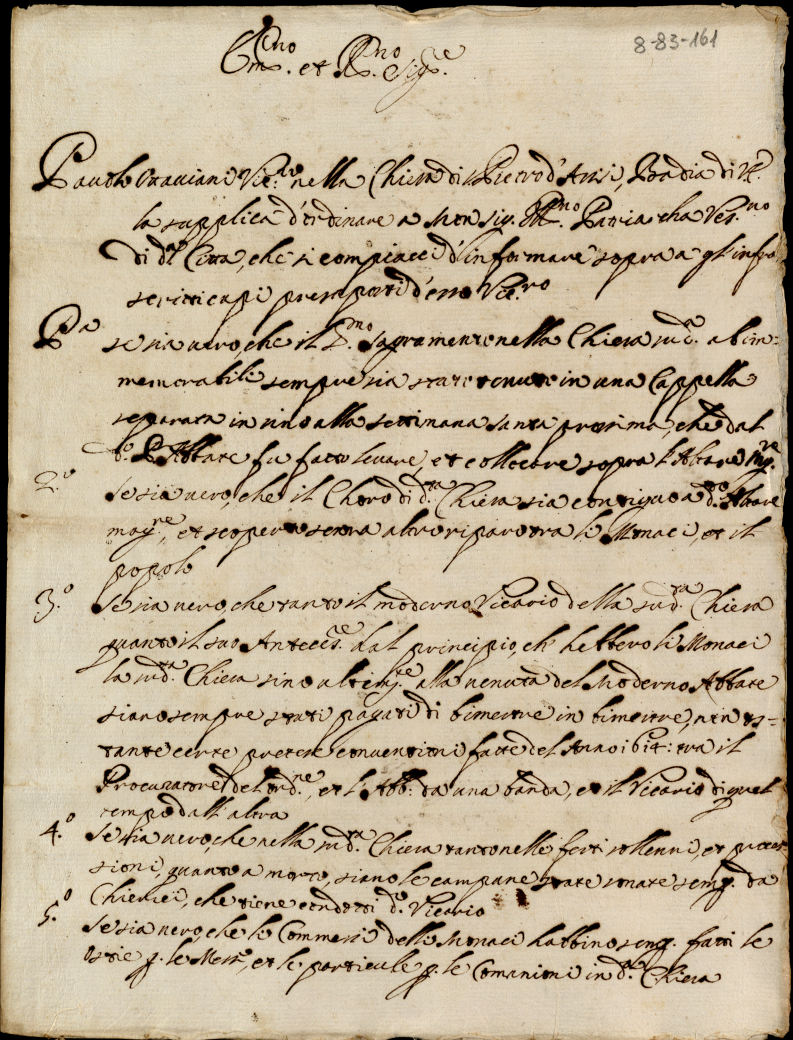 8-83-161
Em.no et R.mo Sig.re
Pauolo Ottauiani Vic.rio nella Chiesa di S Pietro d'Assi, Badia di V.E.
la supplica d'ordinare a Monsig. Ill.mo Patriarcha Ves.uo
di d.a Citta, che si compiacci d'informare sopra a gl'infra
scritti capi presupposti d'esso Vic.rio
P.a se sia uero, che il S.mo Sagramento nella Chiesa sud.a ab im=
memorabili sempre sia stato tenuto in una Cappella
separata insino alla settimana santa prossima, che dal
d.o P. Abbate fu fatto leuare, et collocare sopra l'Altare Mag.re
2.o Se sia uero, che il Choro di d.ta Chiesa sia contiguo a d.to Altare
mag.re, et scoperto senza altro riparo tra li Monaci, et il
popolo
3.o Se sia uero, che tanto il moderno Vicario della sud.ta Chiesa
quanto il suo Antecess.re dal principio, ch' hebbero li Monaci
la sud.ta Chiesa sino ultim.te alla uenuta del Moderno Abbate
siano sempre stati pagati di bimestre in bimestre, non os=
tante certe pretese conuentioni fatte del Anno 1614: tra il
Procuratore del ord.ne, et l'Abb: da una banda, et il Vicario di quel
tempo dall' altra
4.o Se sia uero, che nella sud.ta Chiesa tanto nelle festi sollenni, et proces
sioni, quanto a morto, siano le campane state sonate semp. da
Chierici, che tiene condotti d.o Vicario
5.o Se sia uero, che li Commessi delli Monaci habbino semp. fatti le
Ostie p. le Messe, et le particule p. le Comunioni in d.ta Chiesa